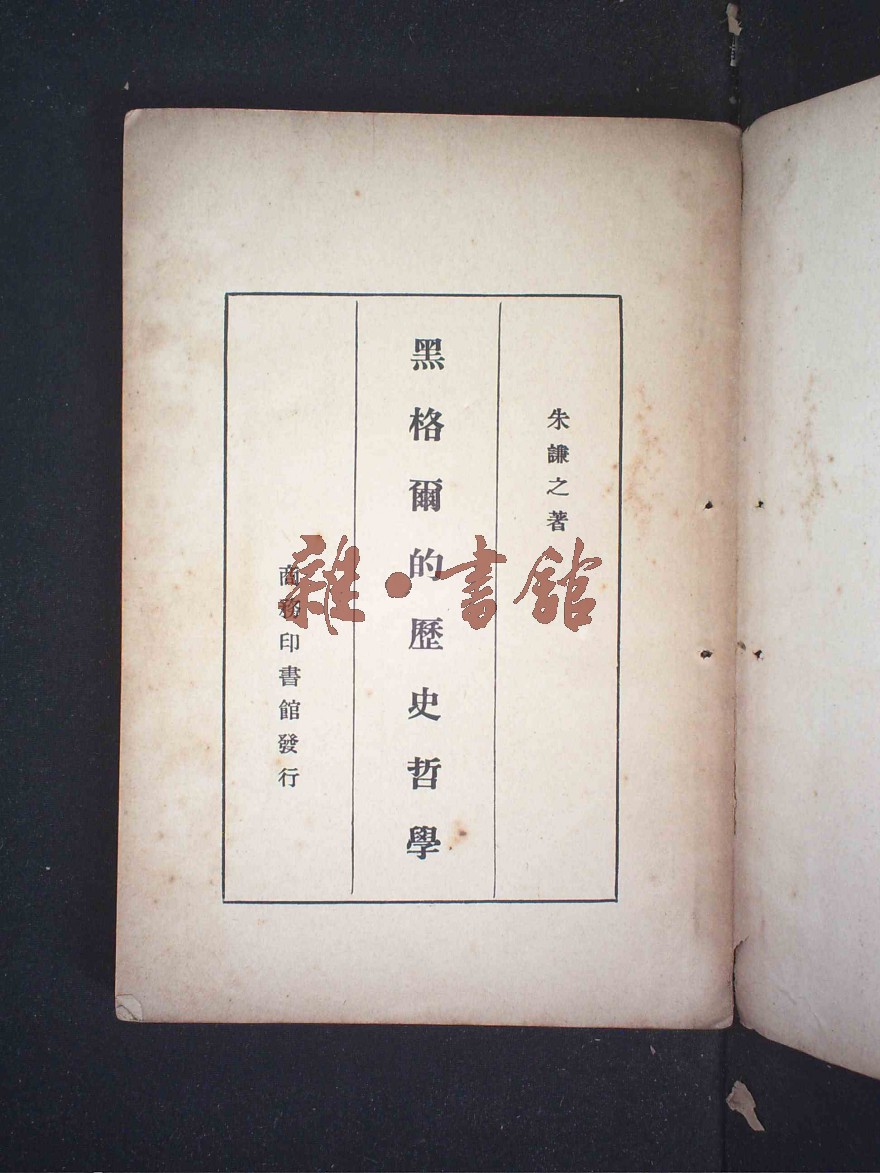 朱謙之著
黑格爾的歷史哲學
商務印書館發行
雜·書館